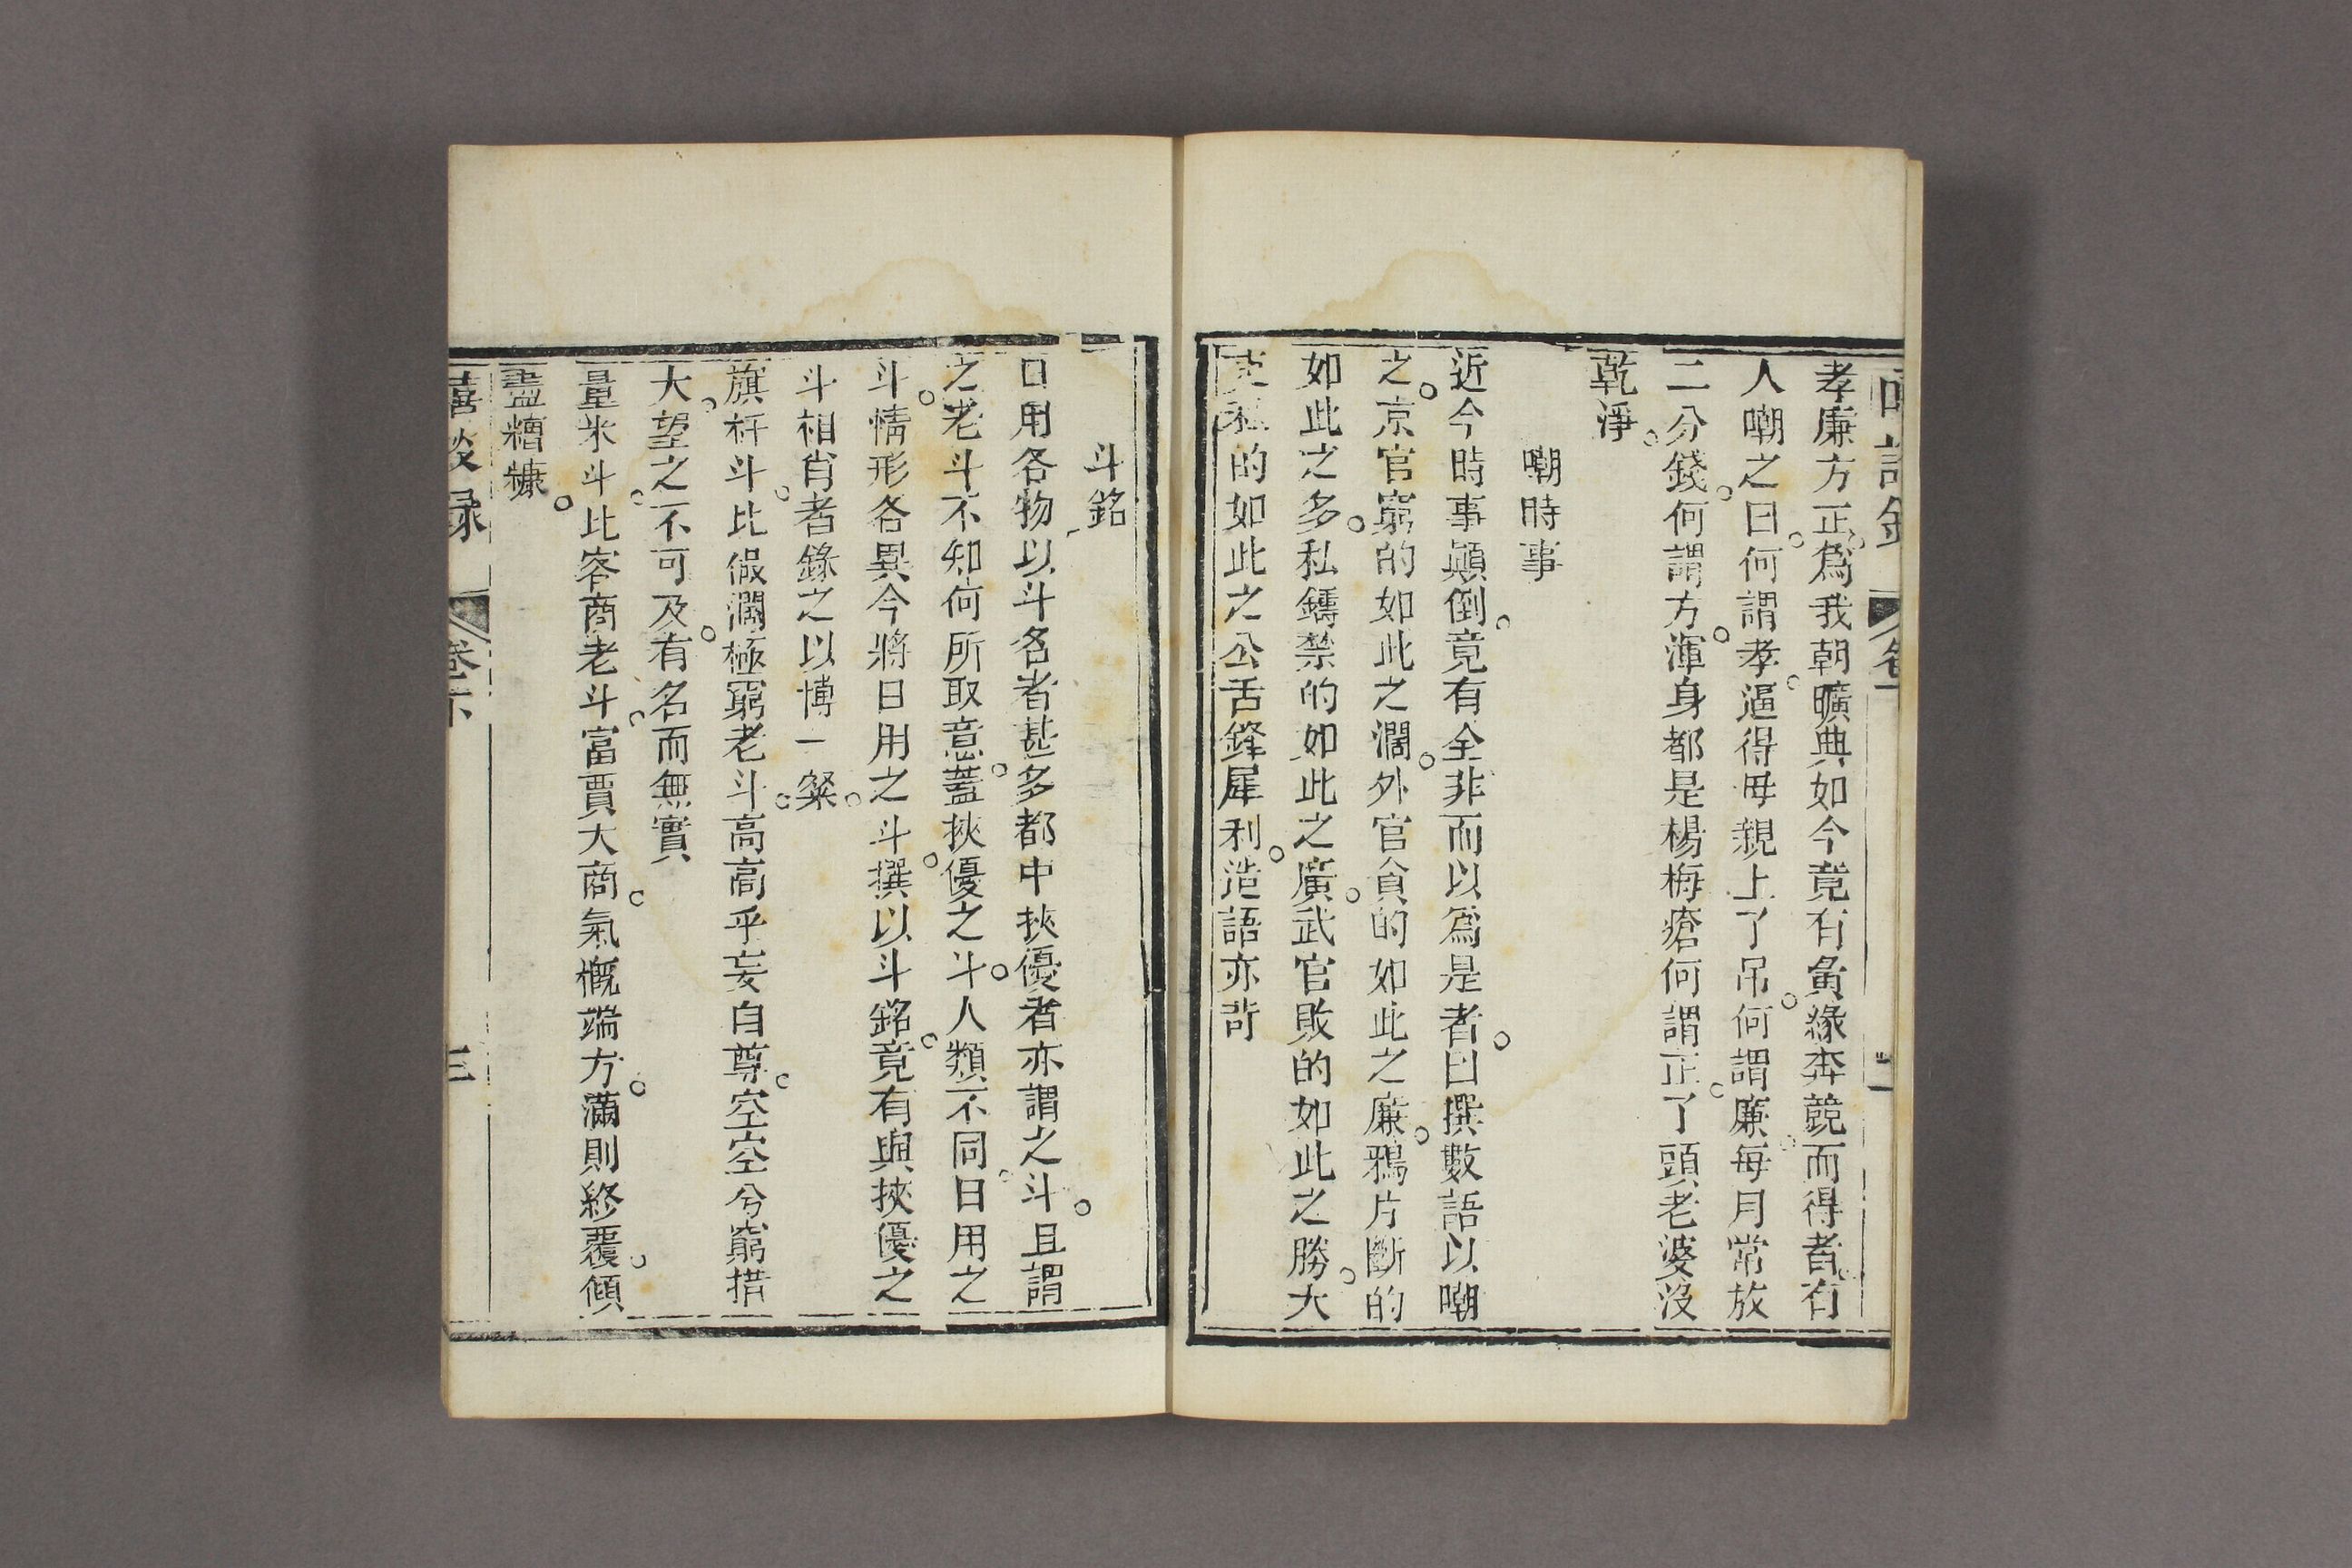 孝廉方正。爲我朝曠典如今竟有夤緣奔競而得者。有
人嘲之曰。何謂孝。逼得母親上了吊。何謂廉。每月常放
二分錢。何謂方。渾身都是楊梅瘡何謂正。了頭老婆沒
乾淨。
嘲時事
近今時事顚倒。竟有全非而以爲是者。曰撰數語以嘲
之。京官窮的如此之濶。外官貪的如此之廉。鴉片斷的
如此之多。私鑄禁的如此之廣。武官敗的如此之勝。大
吏私的如此之公舌鋒犀利。造語亦苛
斗銘
日用各物以斗名者甚多都中挾優者亦謂之斗。且謂
之老斗不知何所取意。蓋挾優之斗。人類不同。日用之
斗。情形各異今將日用之斗。撰以斗銘。竟有與挾優之
斗相肖者錄之以博一粲。
旗杆斗。比假濶極窮老斗。高高乎妄自尊。空空兮窮措
大。望之不可及。有名而無實
量米斗。比客商老斗。富賈大商。氣概端方。滿則終覆。傾
盡糟糠。
嘻談録
卷下
三